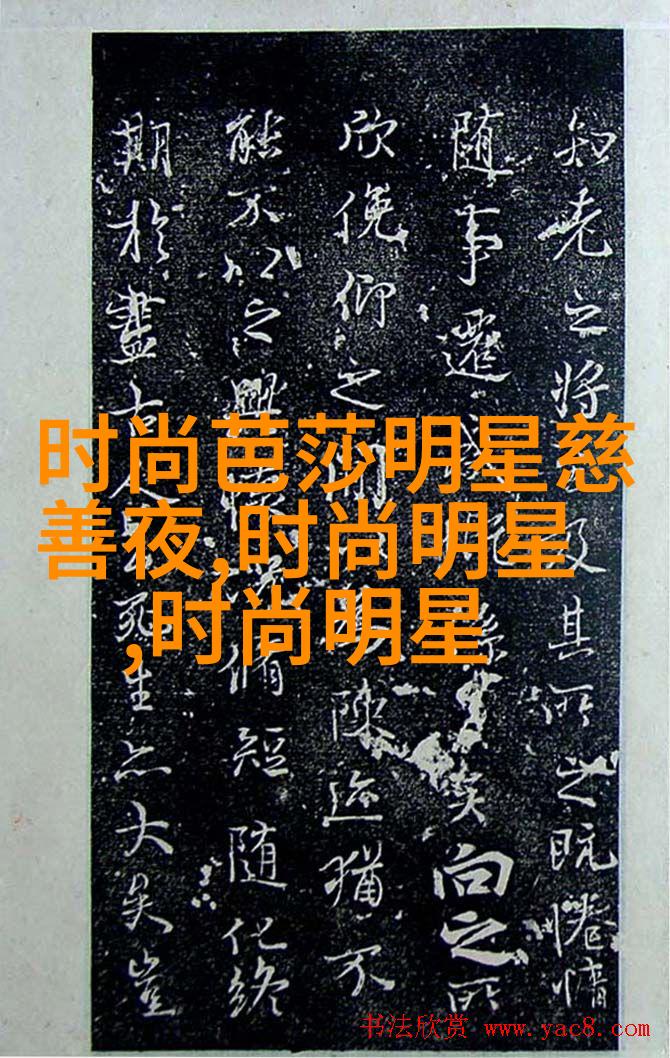 知老之将及其所之既惓情
随事遷感係之矣向之所
欣俛仰之間為陳迹猶不
能不以之興懷脩短随化終
期於盡古人云死生亦大矣豈
时尚芭莎明星慈
善夜,时尚明星
,时尚明星
书法欣赏 www.yac8.com